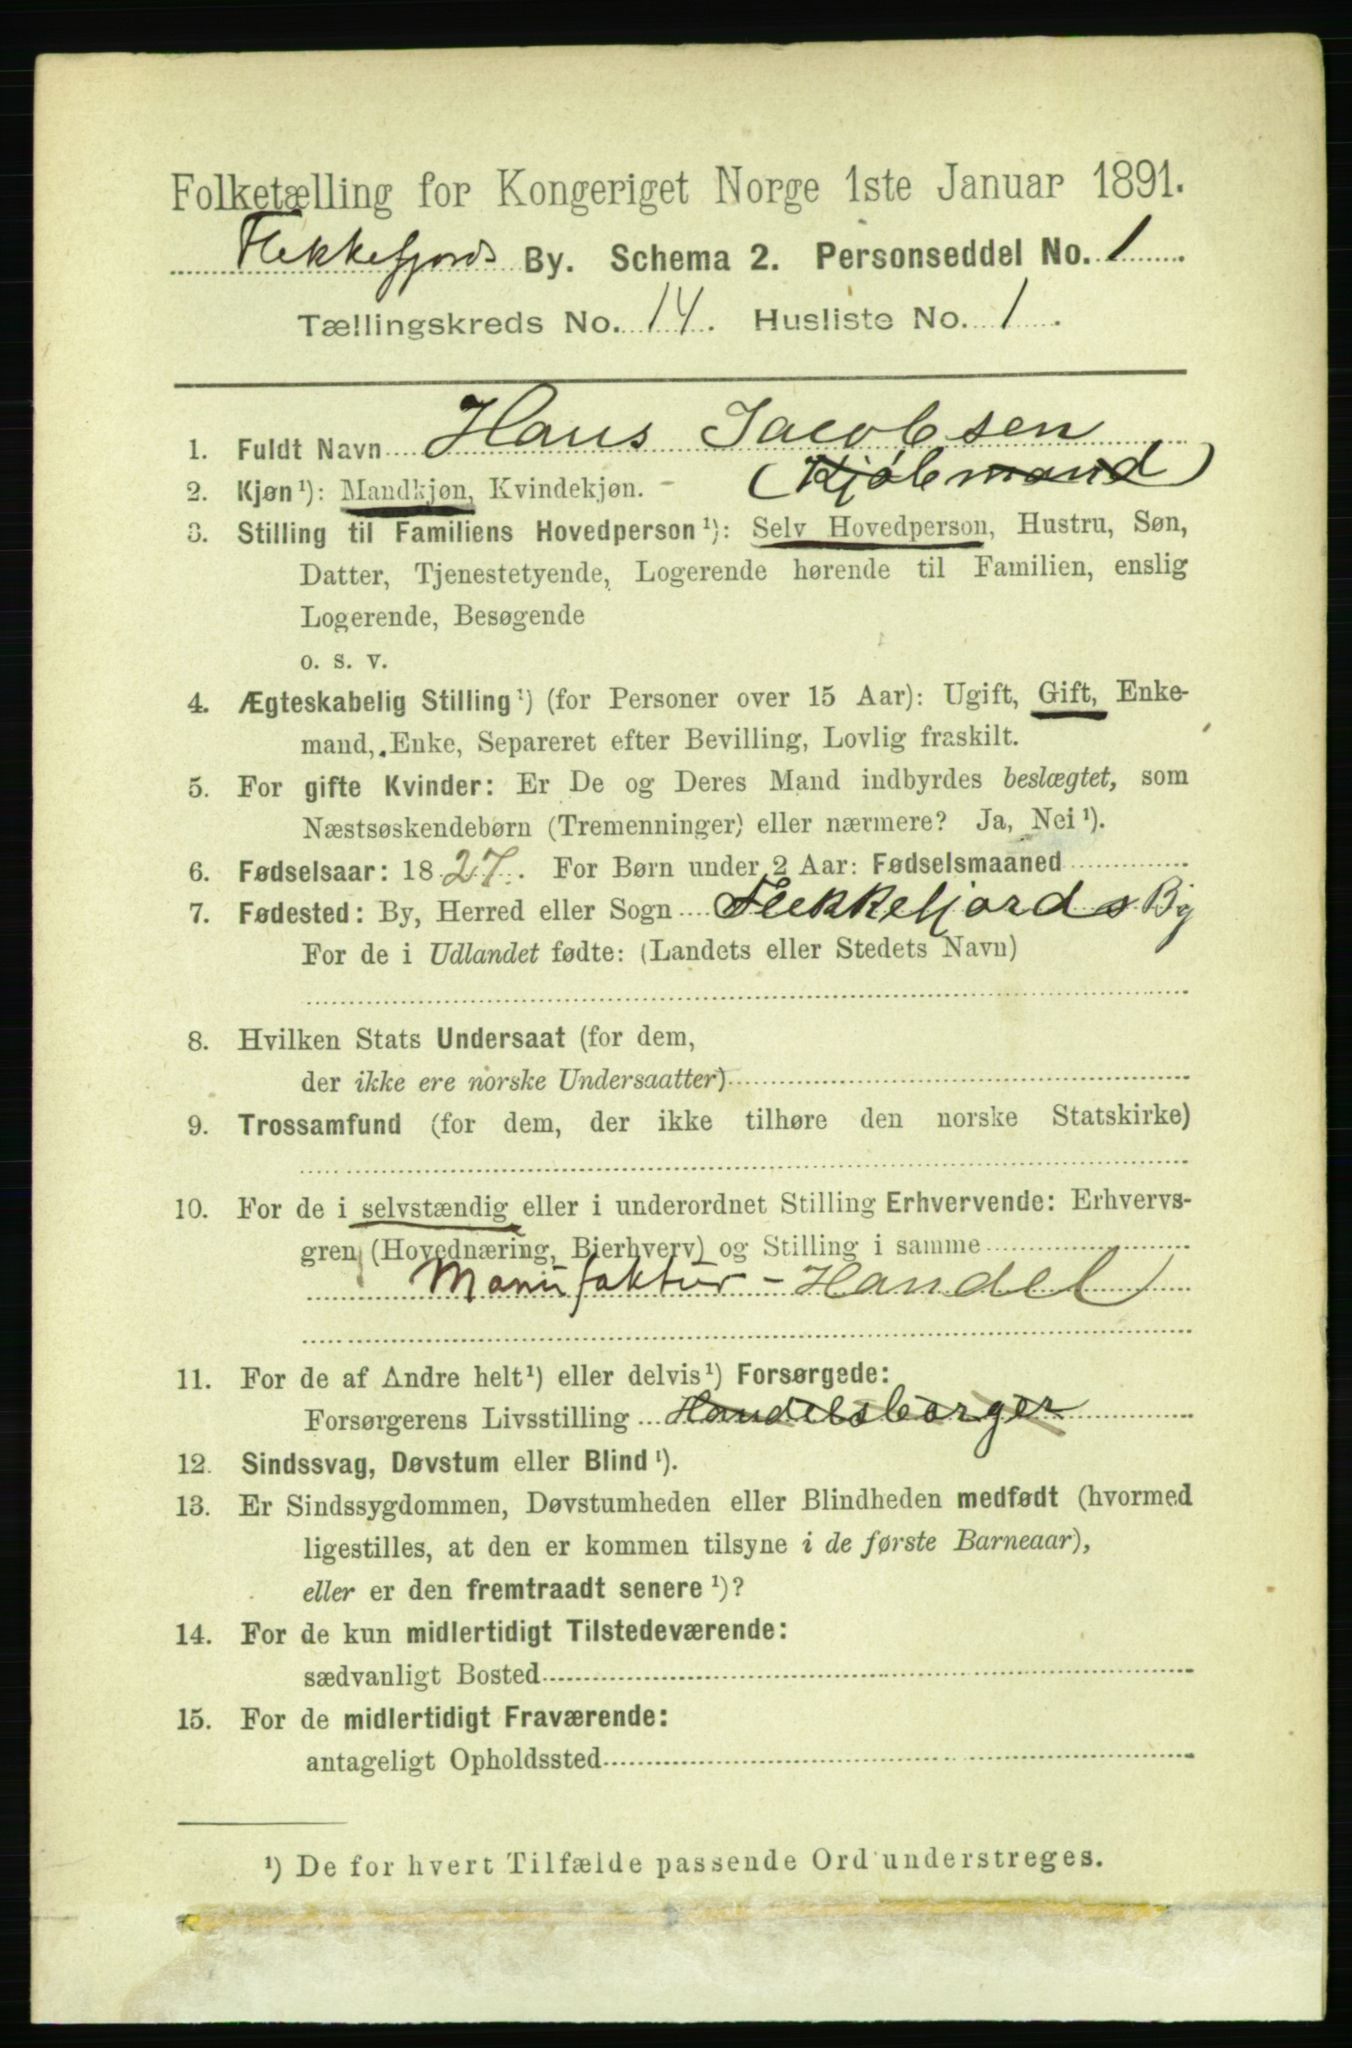 Folketælling for Kongeriget Norge 1ste Januar 1891.
Flekkefjords By. Schema 2. Personseddel No. 1
Tællingskreds No. 14. Husliste No. 1.
1. Fuldt Navn Hans Jacobsen
(Kjøbmand)
2. Kjøn¹): Mandkjøn, Kvindekjøn.
3. Stilling til Familiens Hovedperson¹): Selv Hovedperson, Hustru, Søn,
Datter, Tjenestetyende, Logerende hørende til Familien, enslig
Logerende, Besøgende
o. s. v.
4. Ægteskabelig Stilling¹) (for Personer over 15 Aar): Ugift, Gift, Enke-
mand, Enke, Separeret efter Bevilling, Lovlig fraskilt.
5. For gifte Kvinder: Er De og Deres Mand indbyrdes beslægtet, som
Næstsøskendebørn (Tremenninger) eller nærmere? Ja, Nei¹).
6. Fødselsaar: 1827. For Børn under 2 Aar: Fødselsmaaned
7. Fødested: By, Herred eller Sogn Flekkefjords By
For de i Udlandet fødte: (Landets eller Stedets Navn)
8. Hvilken Stats Undersaat (for dem,
der ikke ere norske Undersaatter)
9. Trossamfund (for dem, der ikke tilhøre den norske Statskirke)
10. For de i selvstændig eller i underordnet Stilling Erhvervende: Erhvervs-
gren (Hovednæring, Bierhverv) og Stilling i samme
Manufaktur-Handel
11. For de af Andre helt¹) eller delvis¹) Forsørgede:
Forsørgerens Livsstilling Handelsborger
12. Sindssvag, Døvstum eller Blind¹).
13. Er Sindssygdommen, Døvstumheden eller Blindheden medfødt (hvormed
ligestilles, at den er kommen tilsyne i de første Barneaar),
eller er den fremtraadt senere¹)?
14. For de kun midlertidigt Tilstedeværende:
sædvanligt Bosted
15. For de midlertidigt Fraværende:
antageligt Opholdssted
¹) De for hvert Tilfælde passende Ord understreges.